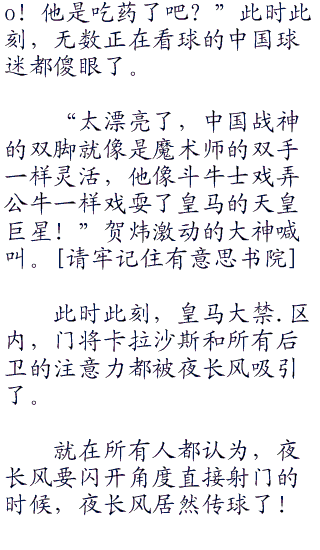 o！他是吃药了吧？”此时此
刻，无数正在看球的中国球
迷都傻眼了。
“太漂亮了，中国战神
的双脚就像是魔术师的双手
一样灵活，他像斗牛士戏弄
公牛一样戏耍了皇马的天皇
巨星！”贺炜激动的大神喊
叫。[请牢记住有意思书院]
此时此刻，皇马大禁.区
内，门将卡拉沙斯和所有后
卫的注意力都被夜长风吸引
了。
就在所有人都认为，夜
长风要闪开角度直接射门的
时候，夜长风居然传球了！